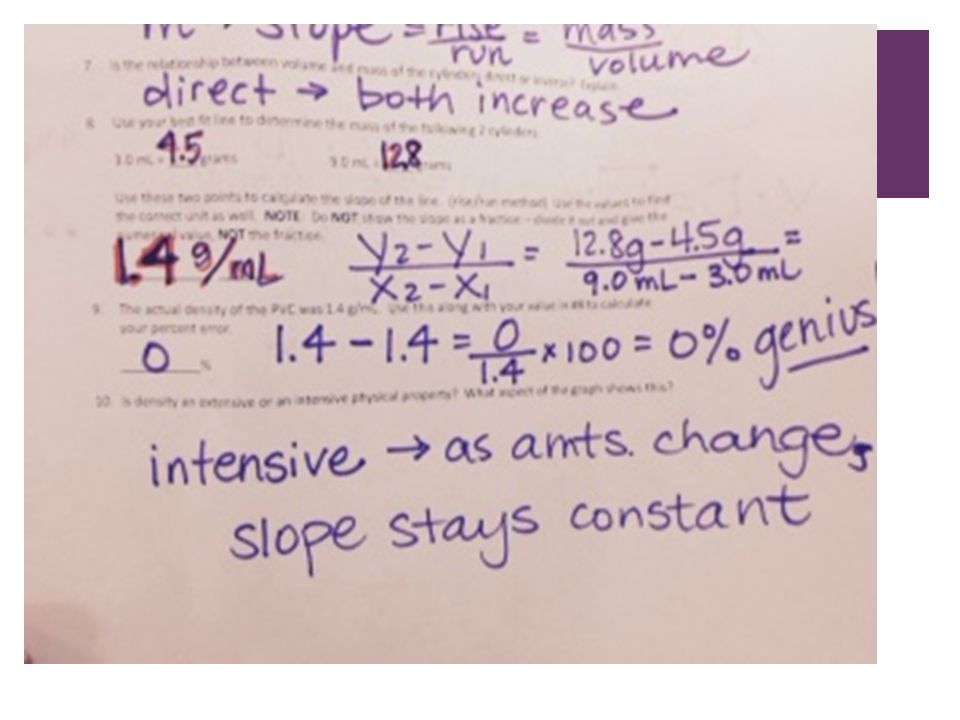 m → slope = rise/run = mass/volume
7. Is the relationship between volume and mass of the cylinders direct or inverse? Explain.
direct → both increase
8. Use your best fit line to determine the mass of the following 2 cylinders
3.0 mL = 4.5 grams 9.0 mL = 12.8 grams
Use these two points to calculate the slope of the line. (rise/run method) Use the values to find
the correct unit as well. NOTE: Do NOT show the slope as a fraction – divide it out and give the
numerical value, NOT the fraction.
1.4 g/mL Y2-Y1/X2-X1 = 12.8g-4.5g/9.0mL-3.0mL =
9. The actual density of the PVC was 1.4 g/mL. Use this along with your value in #8 to calculate
your percent error.
0 % 1.4 - 1.4 = 0/1.4 x 100 = 0% genius
10. Is density an extensive or an intensive physical property? What aspect of the graph shows this?
intensive → as amts. change,
slope stays constant